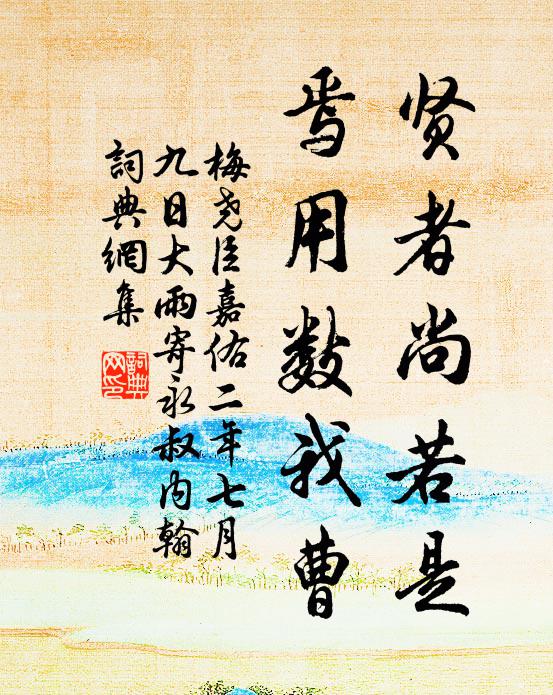 贤者尚若是
焉用数我曹
梅尧臣嘉佑二年七月
九日大雨寄永叔内翰
詞典網集
詞典
网印